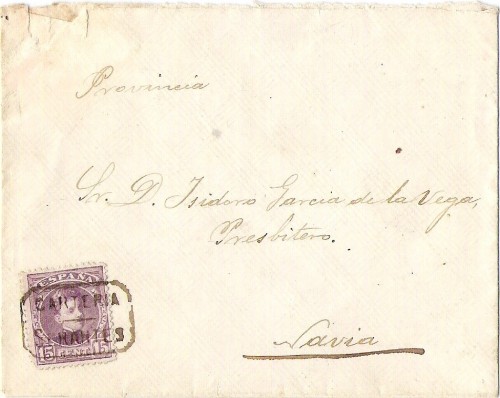 Provincia
Sr. D. Isidoro Garcia de la Vega,
Presbitero.
Navia
ESPAÑA
CARTERIA
15 15